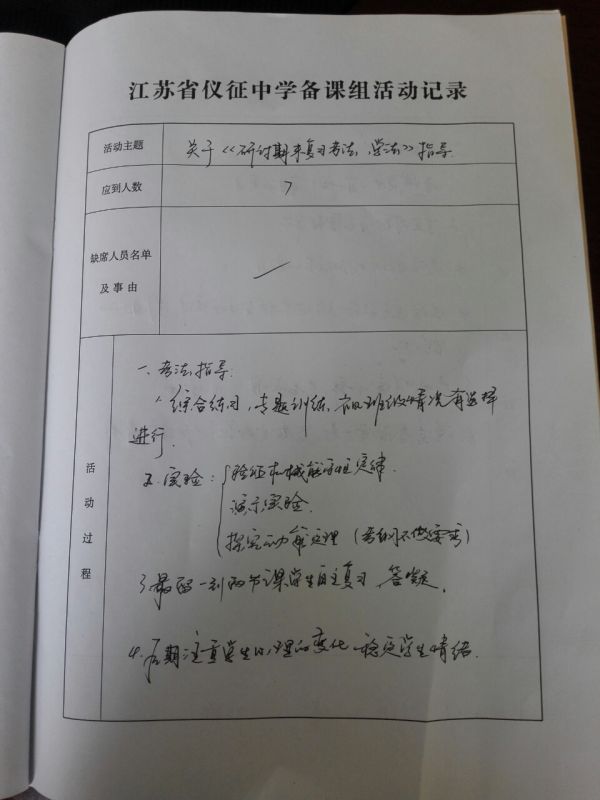 江苏省仪征中学备课组活动记录
活动主题 关于《研讨期末复习考法、学法》指导
应到人数 7
缺席人员名单
及事由
活动过程
一、考法指导:
1、综合练习,专题训练,视班级情况有选择
进行.
2、实验: 验证机械能守恒定律.
演示实验.
探究动能定理(考纲不做要求)
3、最后一到两节课学生自主复习 答疑.
4、后期注重学生心理的变化 稳定学生情绪.